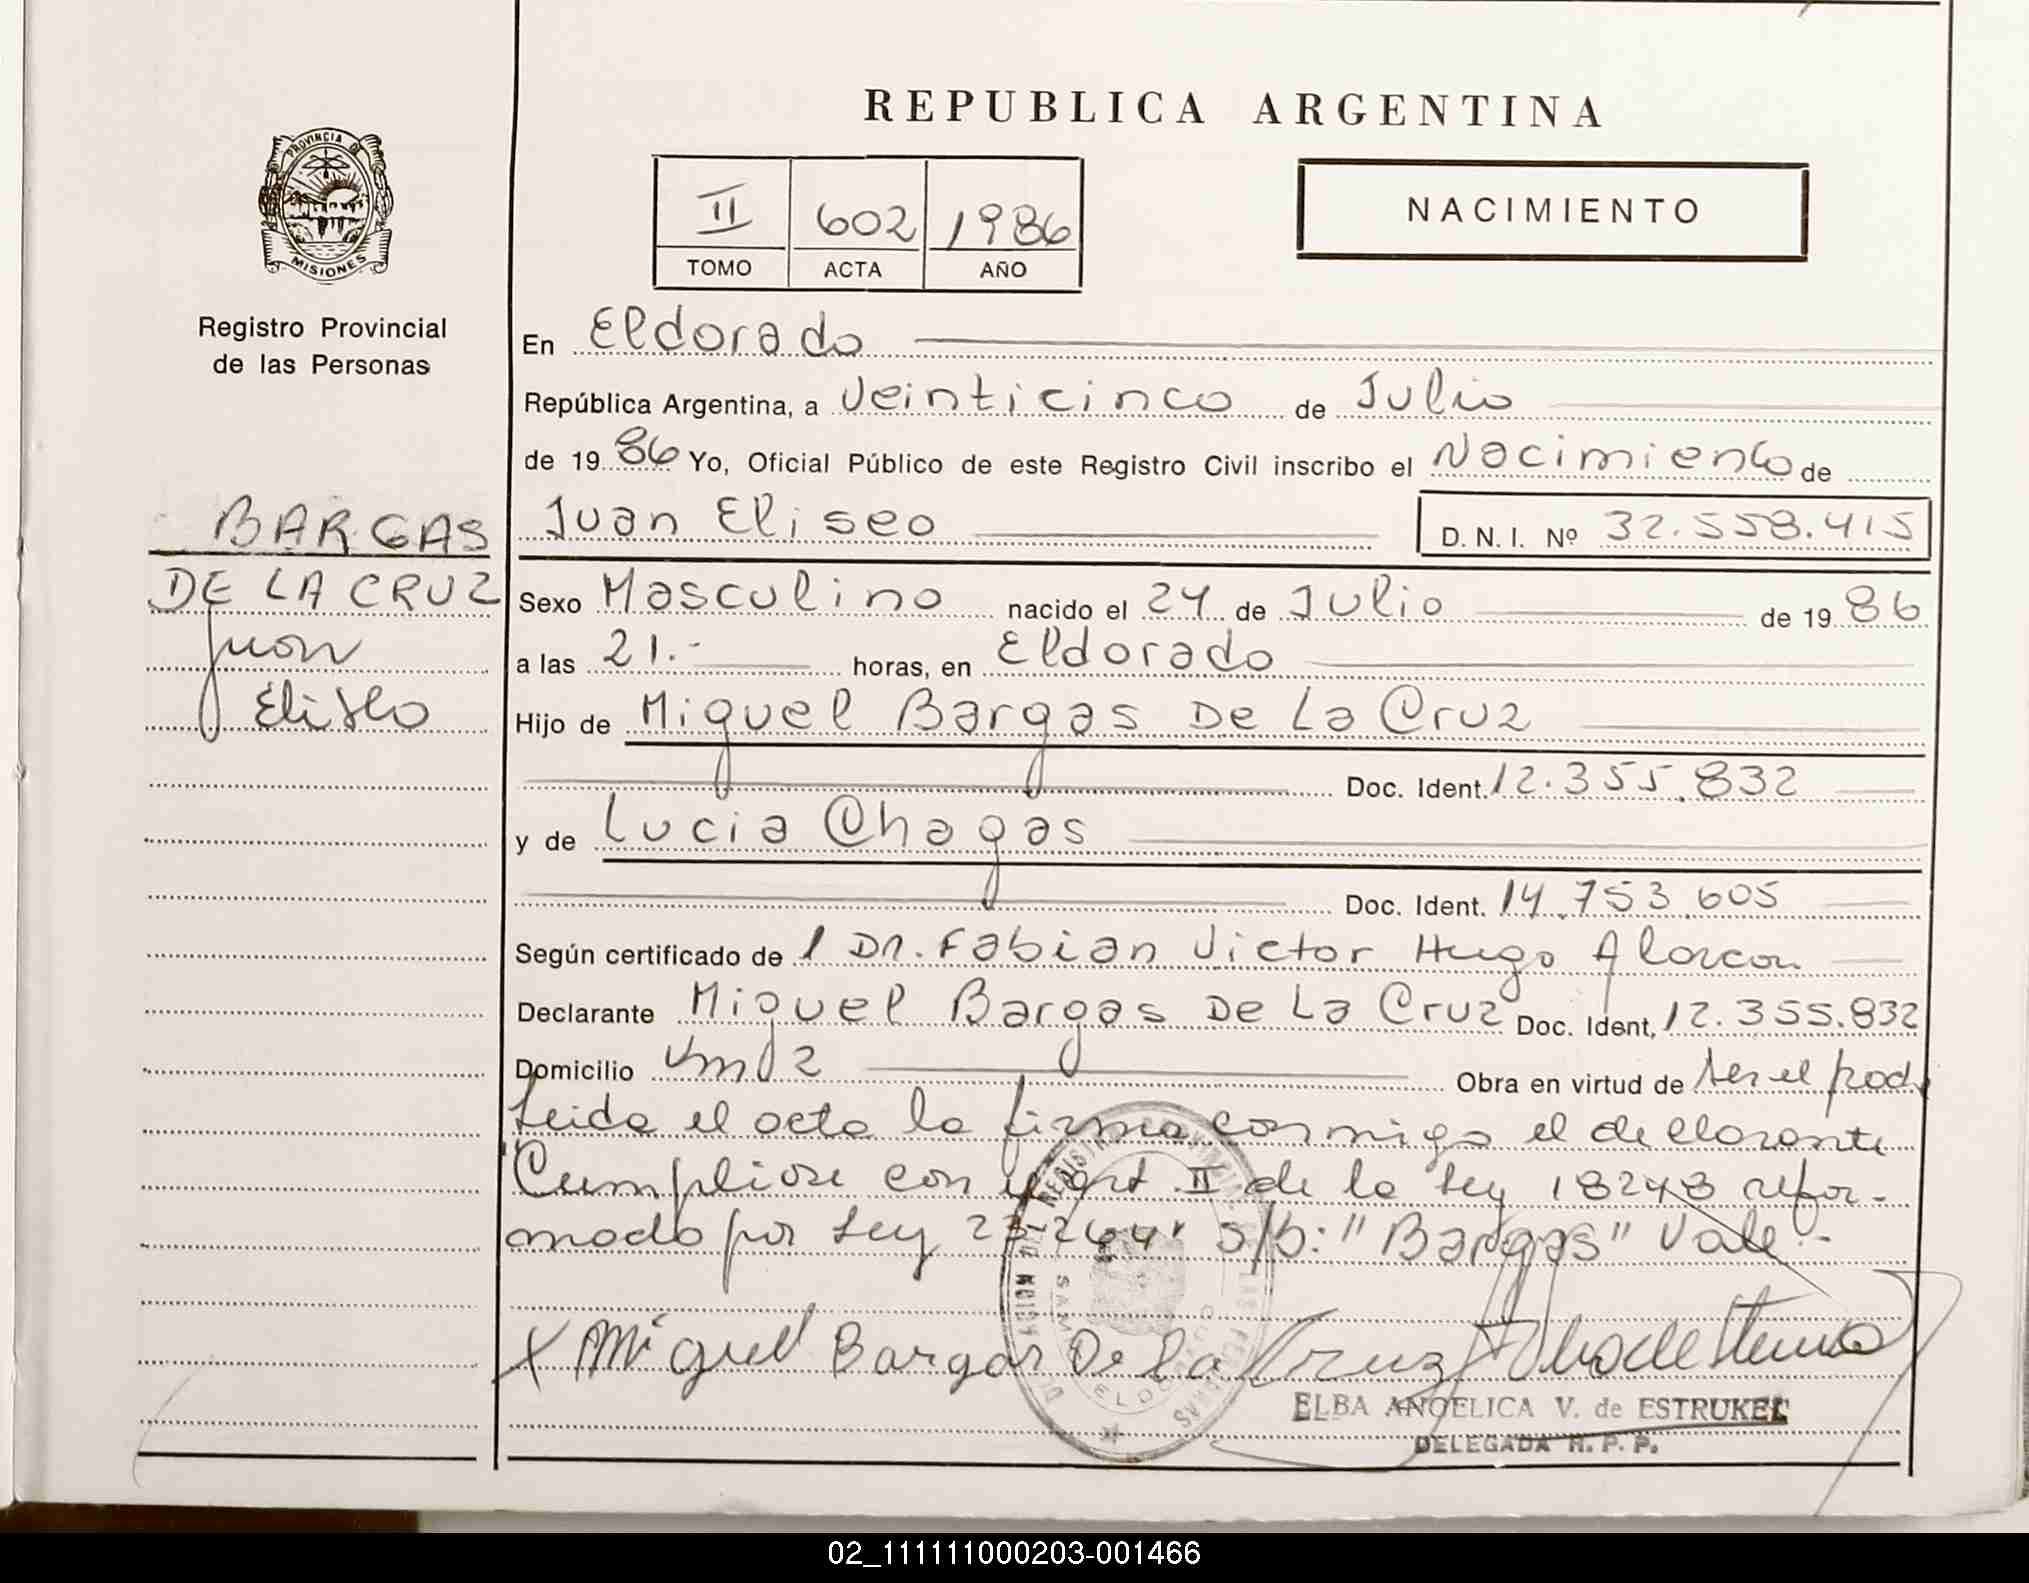 REPUBLICA ARGENTINA
PROVINCIA DE
MISIONES
II 602 1986
TOMO ACTA AÑO
NACIMIENTO
Registro Provincial
de las Personas
En Eldorado
República Argentina, a Veinticinco de Julio
de 19 86 Yo, Oficial Público de este Registro Civil inscribo el Nacimiento de
BARGAS
DE LA CRUZ
Juan
Eliseo
Juan Eliseo D. N. I. Nº 32.558.415
Sexo Masculino nacido el 24 de Julio de 19 86
a las 21.- horas, en Eldorado
Hijo de Miguel Bargas De La Cruz
Doc. Ident. 12.355.832
y de Lucia Chagas
Doc. Ident. 14.753.605
Según certificado de l Dr. Fabian Victor Hugo Alarcon
Declarante Miguel Bargas De La Cruz Doc. Ident, 12.355.832
Domicilio Km 2 Obra en virtud de ser el pad
Leida el acta la firma conmigo el declarante
"Cumpliose con el art. II de la Ley 18248 refor-
mado por Ley 23264" S/b: "Bargas" Vale.-
X Miguel Bargas De la Cruz
ELBA ANGELICA V. de ESTRUKEL
DELEGADA R. P. P.
02_111111000203-001466